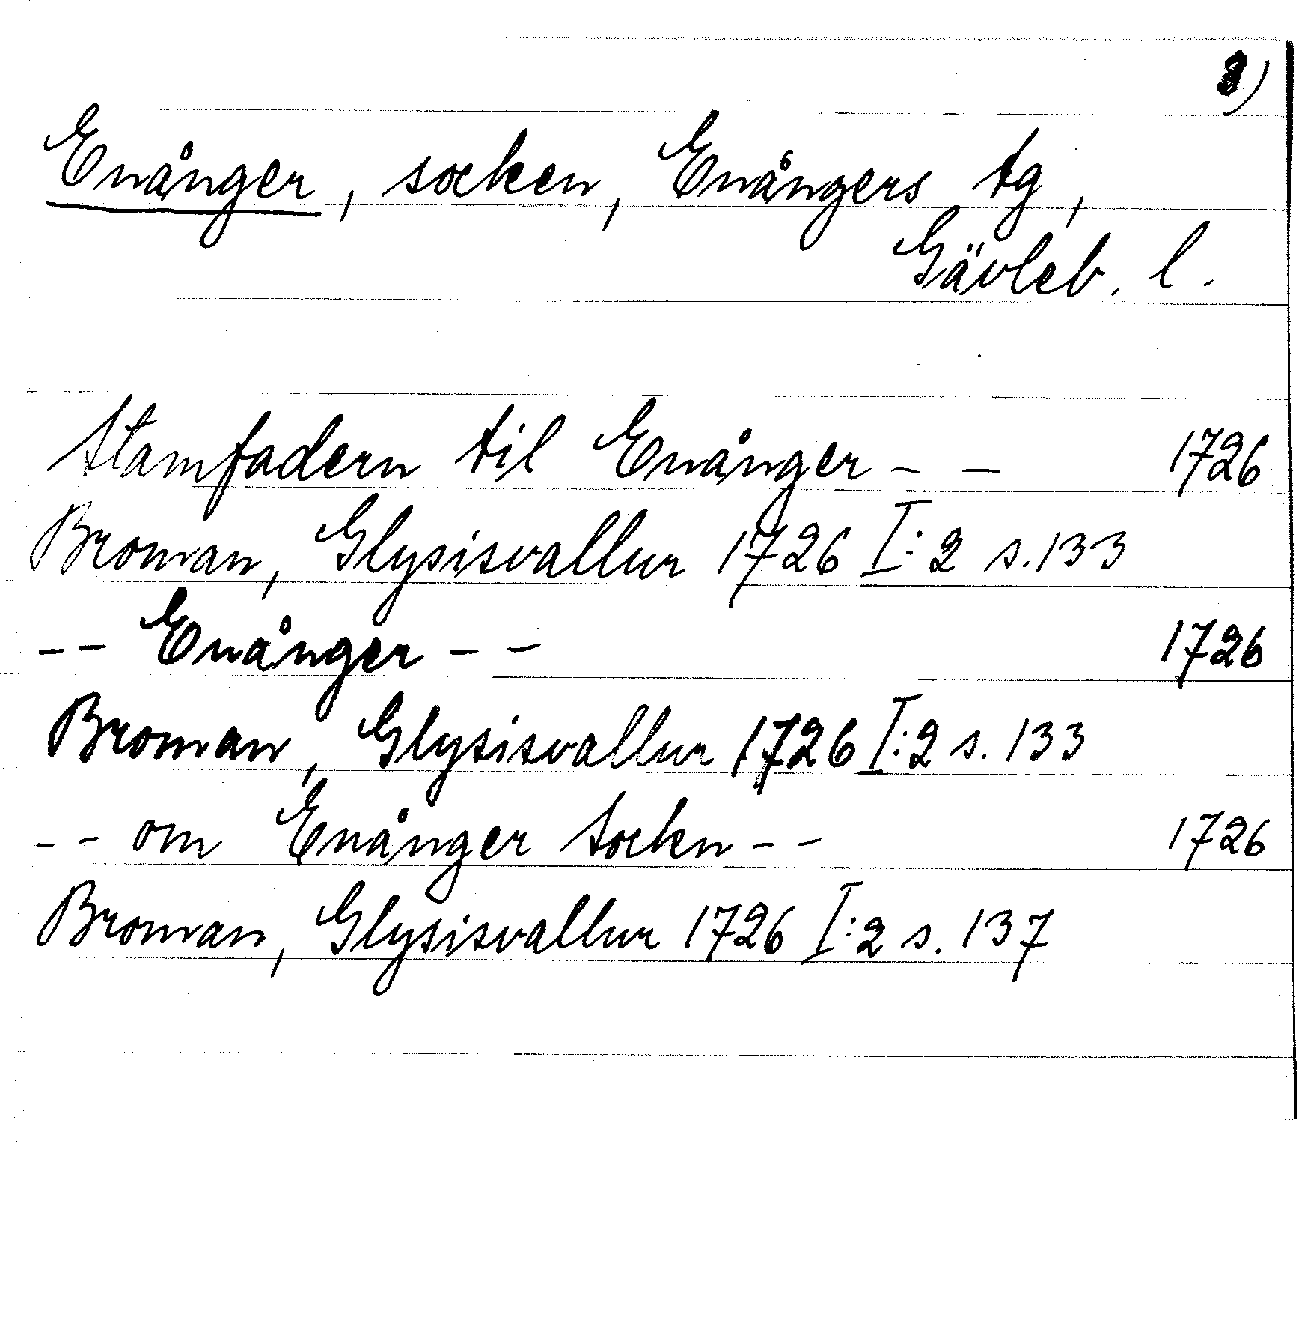 8)
Enånger, socken, Enångers tg,
Gävleb. l.
Stamfadern til Enånger - - 1726
Broman, Glysisvallur 1726 I:2 s. 133
-- Enånger -- 1726
Broman, Glysisvallur 1726 I:2 s. 133
-- om Enånger Sockn -- 1726
Broman, Glysisvallur 1726 I:2 s. 137